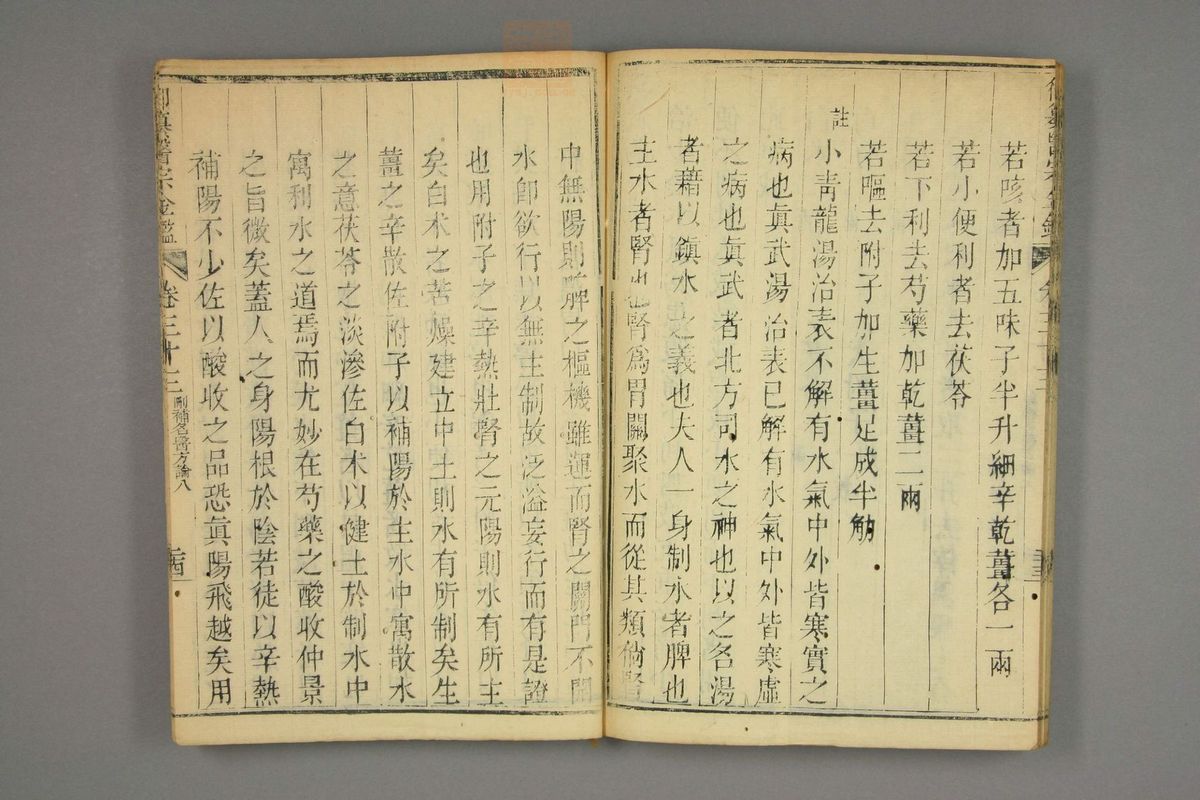 若咳者加五味子半升細辛乾薑各一兩
若小便利者去茯苓
若下利去芍藥加乾薑二兩
若嘔去附子加生薑足成半觔
註
小靑龍湯治表不解有水氣中外皆寒實之
病也眞武湯治表已解有水氣中外皆寒虛
之病也眞武者北方司水之神也以之名湯
者藉以鎭水之義也夫人一身制水者脾也
主水者腎也腎爲胃關聚水而從其類倘腎
中無陽則脾之樞機雖運而腎之關門不開
水卽欲行以無主制故泛溢妄行而有是證
也用附子之辛熱壯腎之元陽則水有所主
矣白术之苦燥建立中土則水有所制矣生
薑之辛散佐附子以補陽於主水中寓散水
之意茯苓之淡滲佐白术以健土於制水中
寓利水之道焉而尤妙在芍藥之酸收仲景
之旨微矣蓋人之身陽根於陰若徒以辛熱
補陽不少佐以酸收之品恐眞陽飛越矣用
御纂醫宗金鑑
卷三十三
刪補名醫方論八